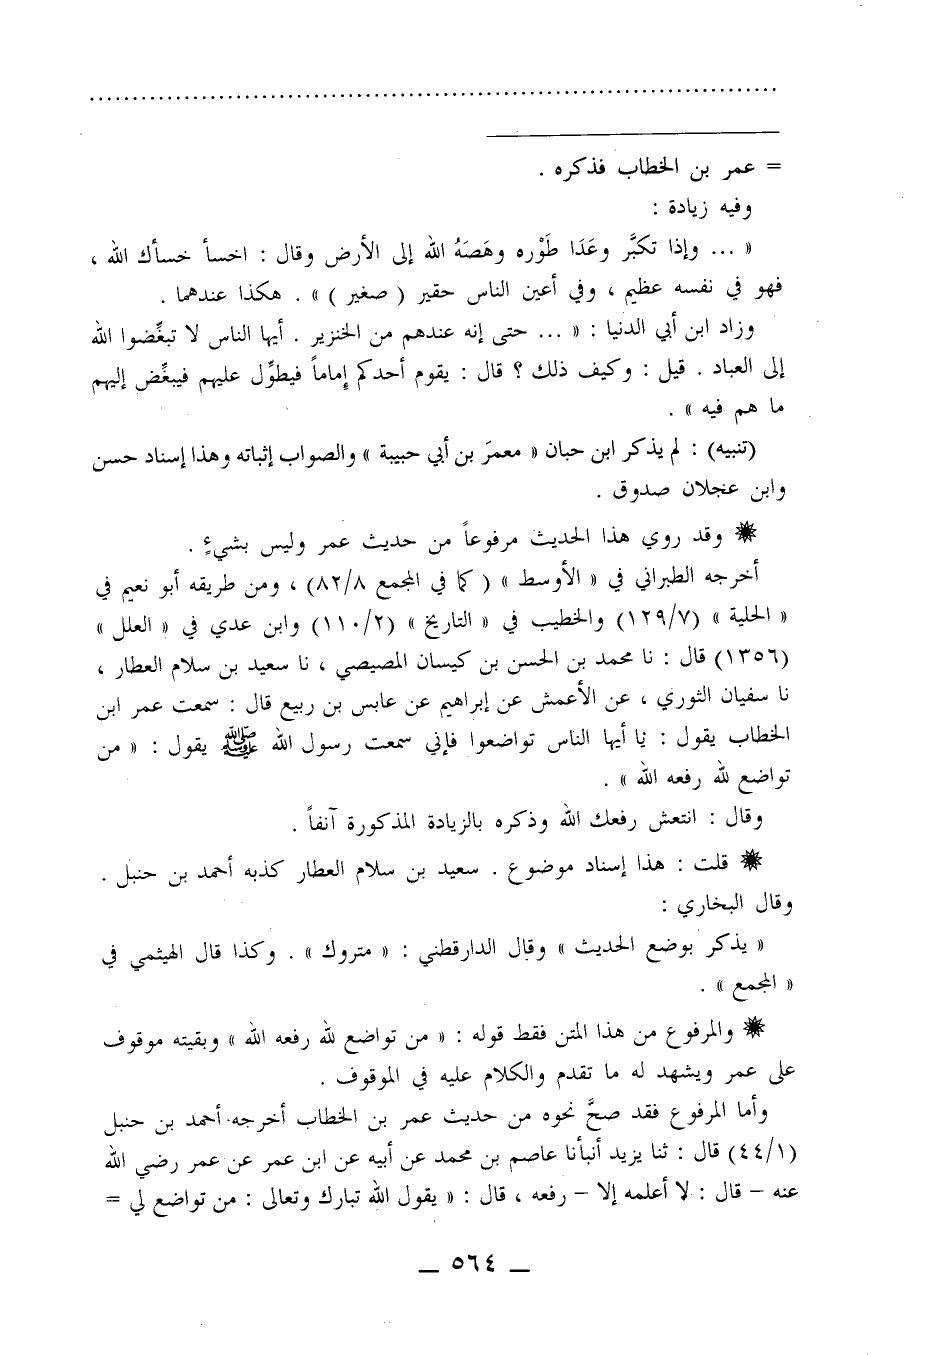 = عمر بن الخطاب فذكره .
وفيه زيادة :
« ... وإذا تكبَّر وعَدَا طَوْره وهَصَهُ الله إلى الأرض وقال : اخسأ خسأك الله ،
فهو في نفسه عظيم ، وفي أعين الناس حقير ( صغير ) » . هكذا عندهما .
وزاد ابن أبي الدنيا : « ... حتى إنه عندهم من الخنزير . أيها الناس لا تبغِّضوا الله
إلى العباد . قيل : وكيف ذلك ؟ قال : يقوم أحدكم إماماً فيطوِّل عليهم فيبغِّض إليهم
ما هم فيه » .
(تنبيه) : لم يذكر ابن حبان « معمرَ بن أبي حبيبة » والصواب إثباته وهذا إسناد حسن
وابن عجلان صدوق .
✸ وقد روي هذا الحديث مرفوعاً من حديث عمر وليس بشيءٍ .
أخرجه الطبراني في « الأوسط » ( كما في المجمع ٨٢/٨) ، ومن طريقه أبو نعيم في
« الحلية » (١٢٩/٧) والخطيب في « التاريخ » (١١٠/٢) وابن عدي في « العلل »
(١٣٥٦) قال : نا محمد بن الحسن بن كيسان المصيصي ، نا سعيد بن سلام العطار ،
نا سفيان الثوري ، عن الأعمش عن إبراهيم عن عابس بن ربيع قال : سمعت عمر ابن
الخطاب يقول : يا أيها الناس تواضعوا فإني سمعت رسول الله ﷺ يقول : « من
تواضع لله رفعه الله » .
وقال : انتعش رفعك الله وذكره بالزيادة المذكورة آنفاً .
✸ قلت : هذا إسناد موضوع . سعيد بن سلام العطار كذبه أحمد بن حنبل .
وقال البخاري :
« يذكر بوضع الحديث » وقال الدارقطني : « متروك » . وكذا قال الهيثمي في
« المجمع » .
✸ والمرفوع من هذا المتن فقط قوله : « من تواضع لله رفعه الله » وبقيته موقوف
على عمر ويشهد له ما تقدم والكلام عليه في الموقوف .
وأما المرفوع فقد صحَّ نحوه من حديث عمر بن الخطاب أخرجه أحمد بن حنبل
(٤٤/١) قال : ثنا يزيد أنبأنا عاصم بن محمد عن أبيه عن ابن عمر عن عمر رضي الله
عنه – قال : لا أعلمه إلا – رفعه ، قال : « يقول الله تبارك وتعالى : من تواضع لي =
— ٥٦٤ —